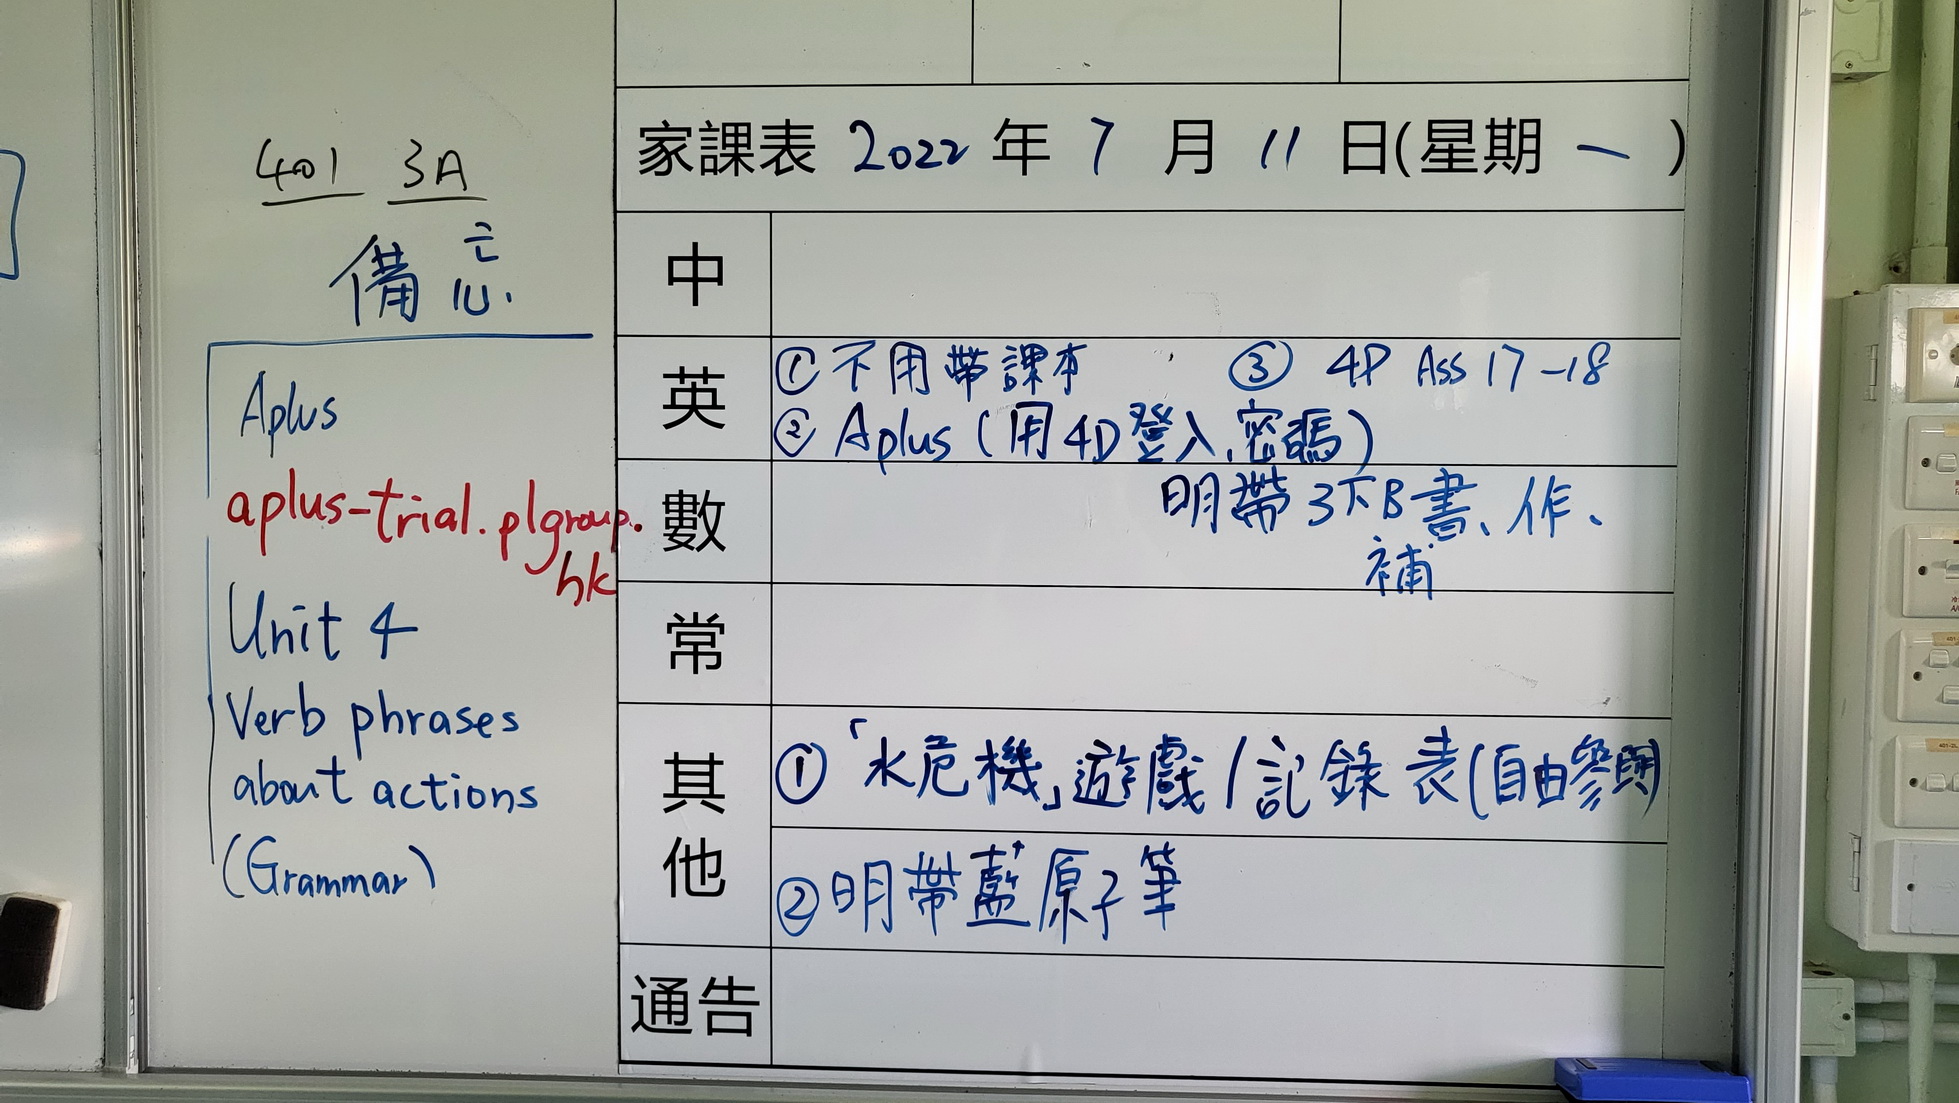 401 3A
備忘
Aplus
aplus-trial.plgroup.
hk
Unit 4
Verb phrases
about actions
(Grammar)
家課表 2022 年 7 月 11 日(星期 一 )
中
英
① 不用帶課本 ③ 4P Ass 17-18
② Aplus (用4D登入、密碼)
數
明帶 3下B書、作、
補
常
其他
①「水危機」遊戲/記錄表(自由參與)
②明帶藍原子筆
通告